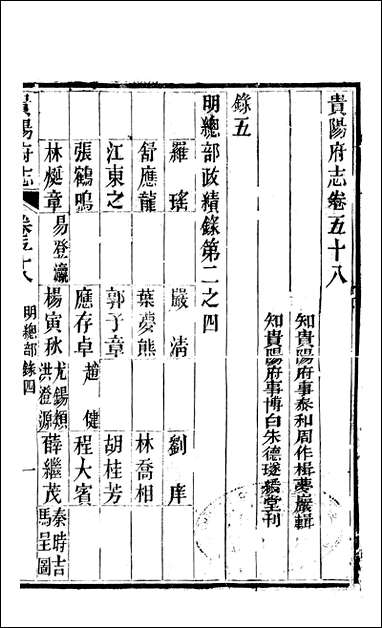 貴陽府志卷五十八
知貴陽府事泰和周作楫夢巖輯
知貴陽府事博白朱德璲繡堂刊
錄五
明總部政績錄第二之四
羅瑤 嚴清 劉庠
舒應龍 葉夢熊 林喬相
江東之 郭子章 胡桂芳
張鶴鳴 應存卓 趙健 程大賓
林梃章 易登瀛 楊寅秋 尤錫類 洪澄源 薛繼茂 秦時吉 馬呈圖
貴陽府志 卷五十八 明總部錄四 一